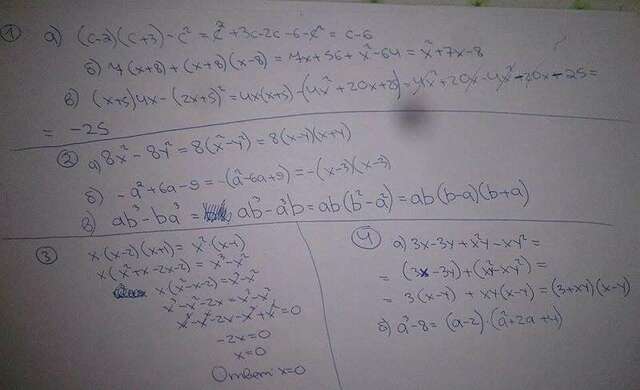 1 а) (c-2)(c+3)-c² = c²+3c-2c-6-c² = c-6
б) 7(x+8)+(x+8)(x-8) = 7x+56+x²-64 = x²+7x-8
в) (x+5)4x-(2x+5)² = 4x(x+5)-(4x²+20x+25) = 4x²+20x-4x²-20x-25 =
= -25
2 а) 8x²-8y² = 8(x²-y²) = 8(x-y)(x+y)
б) -a²+6a-9 = -(a²-6a+9) = -(x-3)(x-3)
в) ab³-ba³ = ab³-a³b = ab(b²-a²) = ab(b-a)(b+a)
3 x(x-2)(x+1) = x²·(x-1)
x(x²+x-2x-2) = x³-x²
x(x²-x-2) = x³-x²
x³-x²-2x = x³-x²
x³-x²-2x-x³+x² = 0
-2x=0
x=0
Ответ: x=0
4 а) 3x-3y+x²y-xy² =
= (3x-3y)+(x²y-xy²) =
= 3(x-y)+xy(x-y) = (3+xy)(x-y)
б) a³-8 = (a-2)·(a²+2a+4)